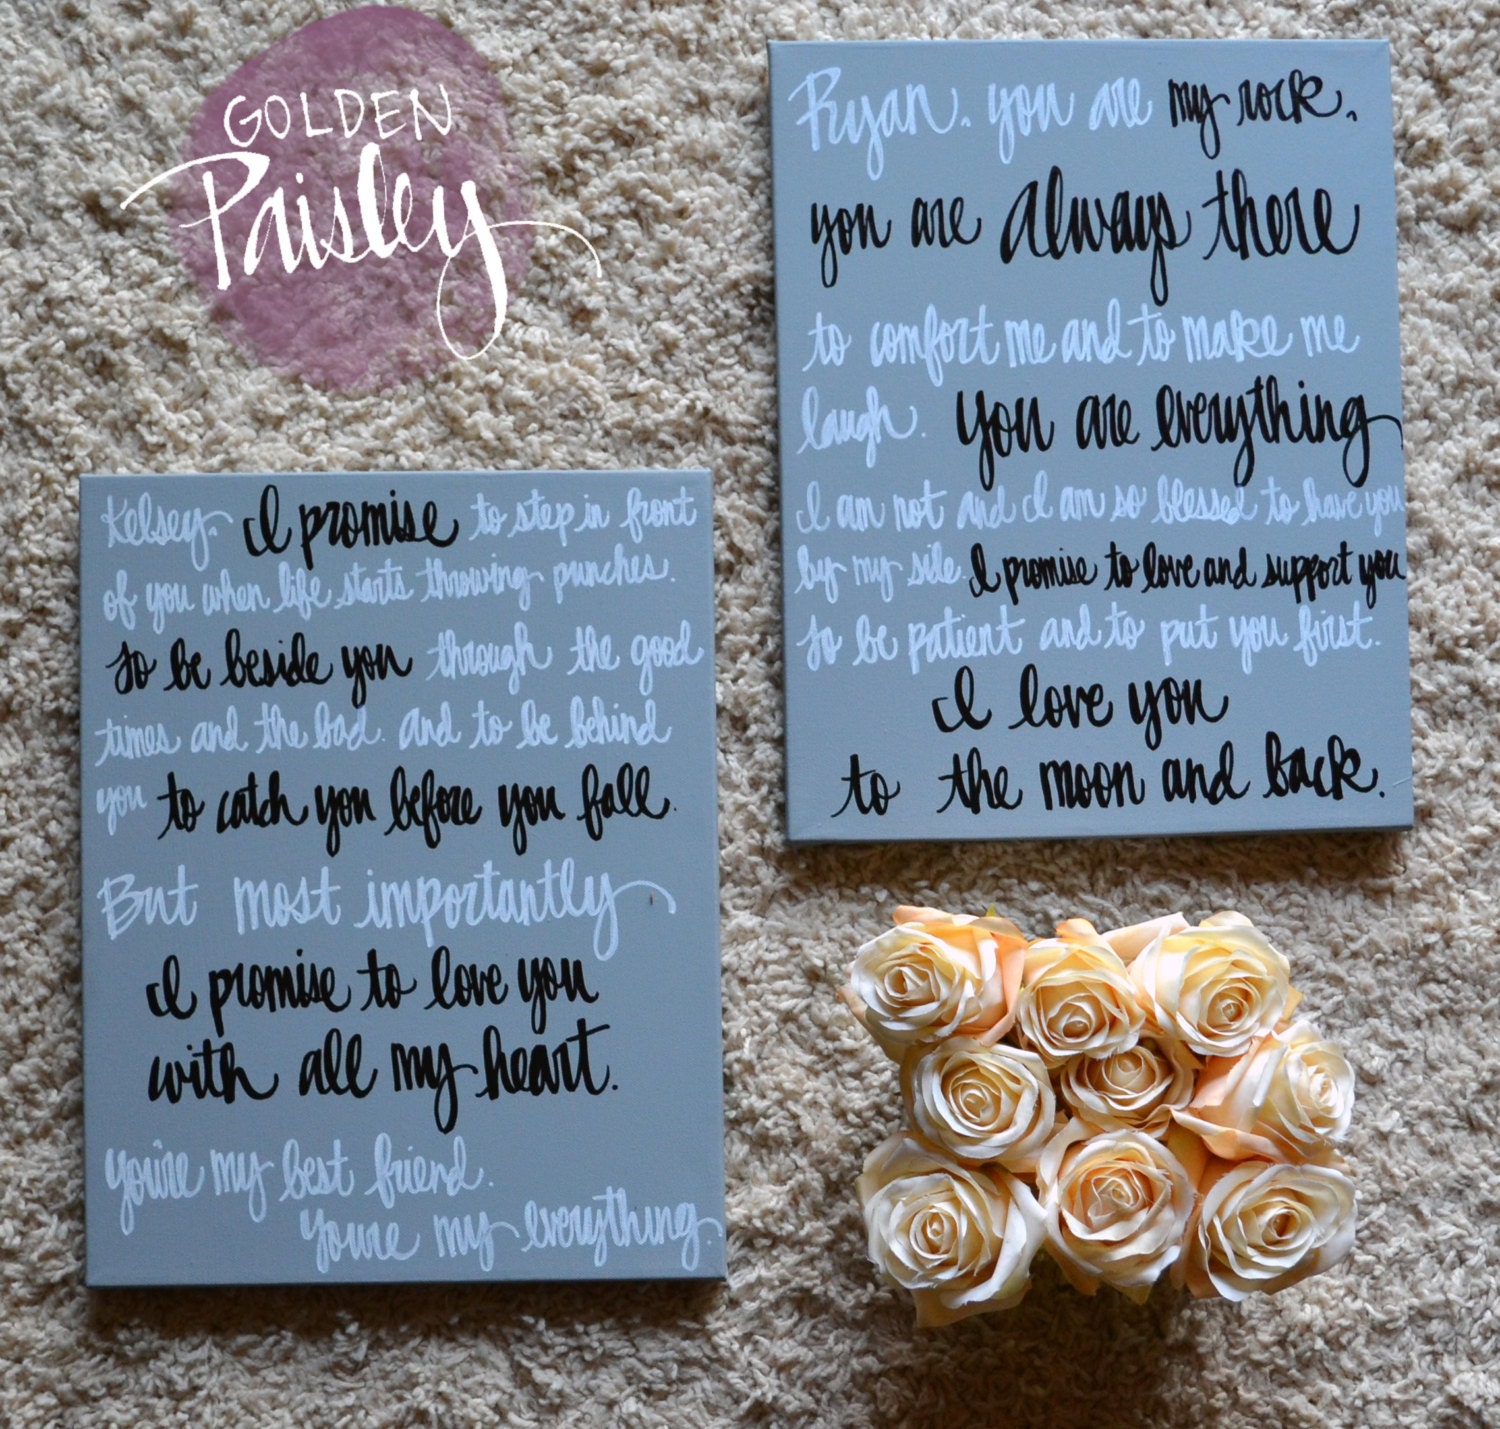 GOLDEN
Paisley
Kelsey, I promise to step in front
of you when life starts throwing punches.
to be beside you through the good
times and the bad. and to be behind
you to catch you before you fall.
But most importantly
I promise to love you
with all my heart.
you're my best friend.
you're my everything.
Ryan, you are my rock,
you are always there
to comfort me and to make me
laugh. you are everything
I am not and I am so blessed to have you
by my side. I promise to love and support you
to be patient and to put you first.
I love you
to the moon and back.